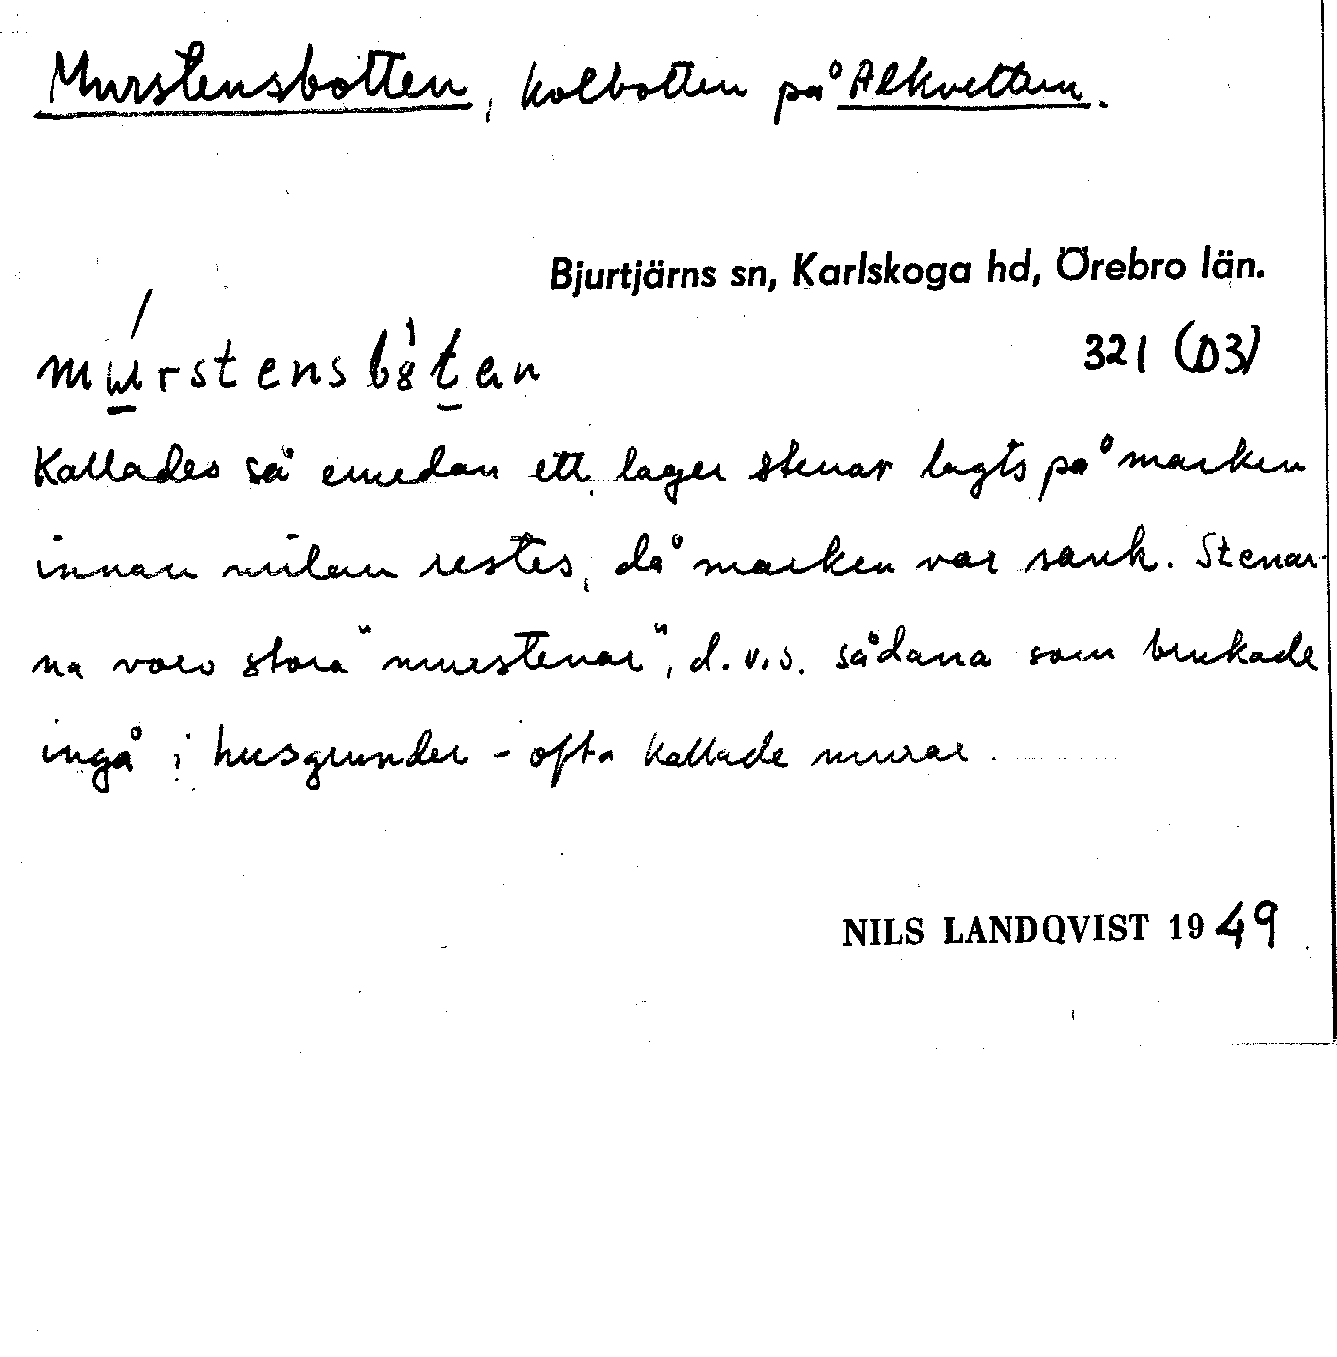 Murstensbotten, kolbotten på Alkvettern.
Bjurtjärns sn, Karlskoga hd, Örebro län.
321 (D3)
Kallades så emedan ett lager stenar lagts på marken
innan milan restes, då marken var sank. Stenar-
na voro stora "murstenar", d.v.s. sådana som brukade
ingå i husgrunder - ofta kallade murar.
NILS LANDQVIST 1949